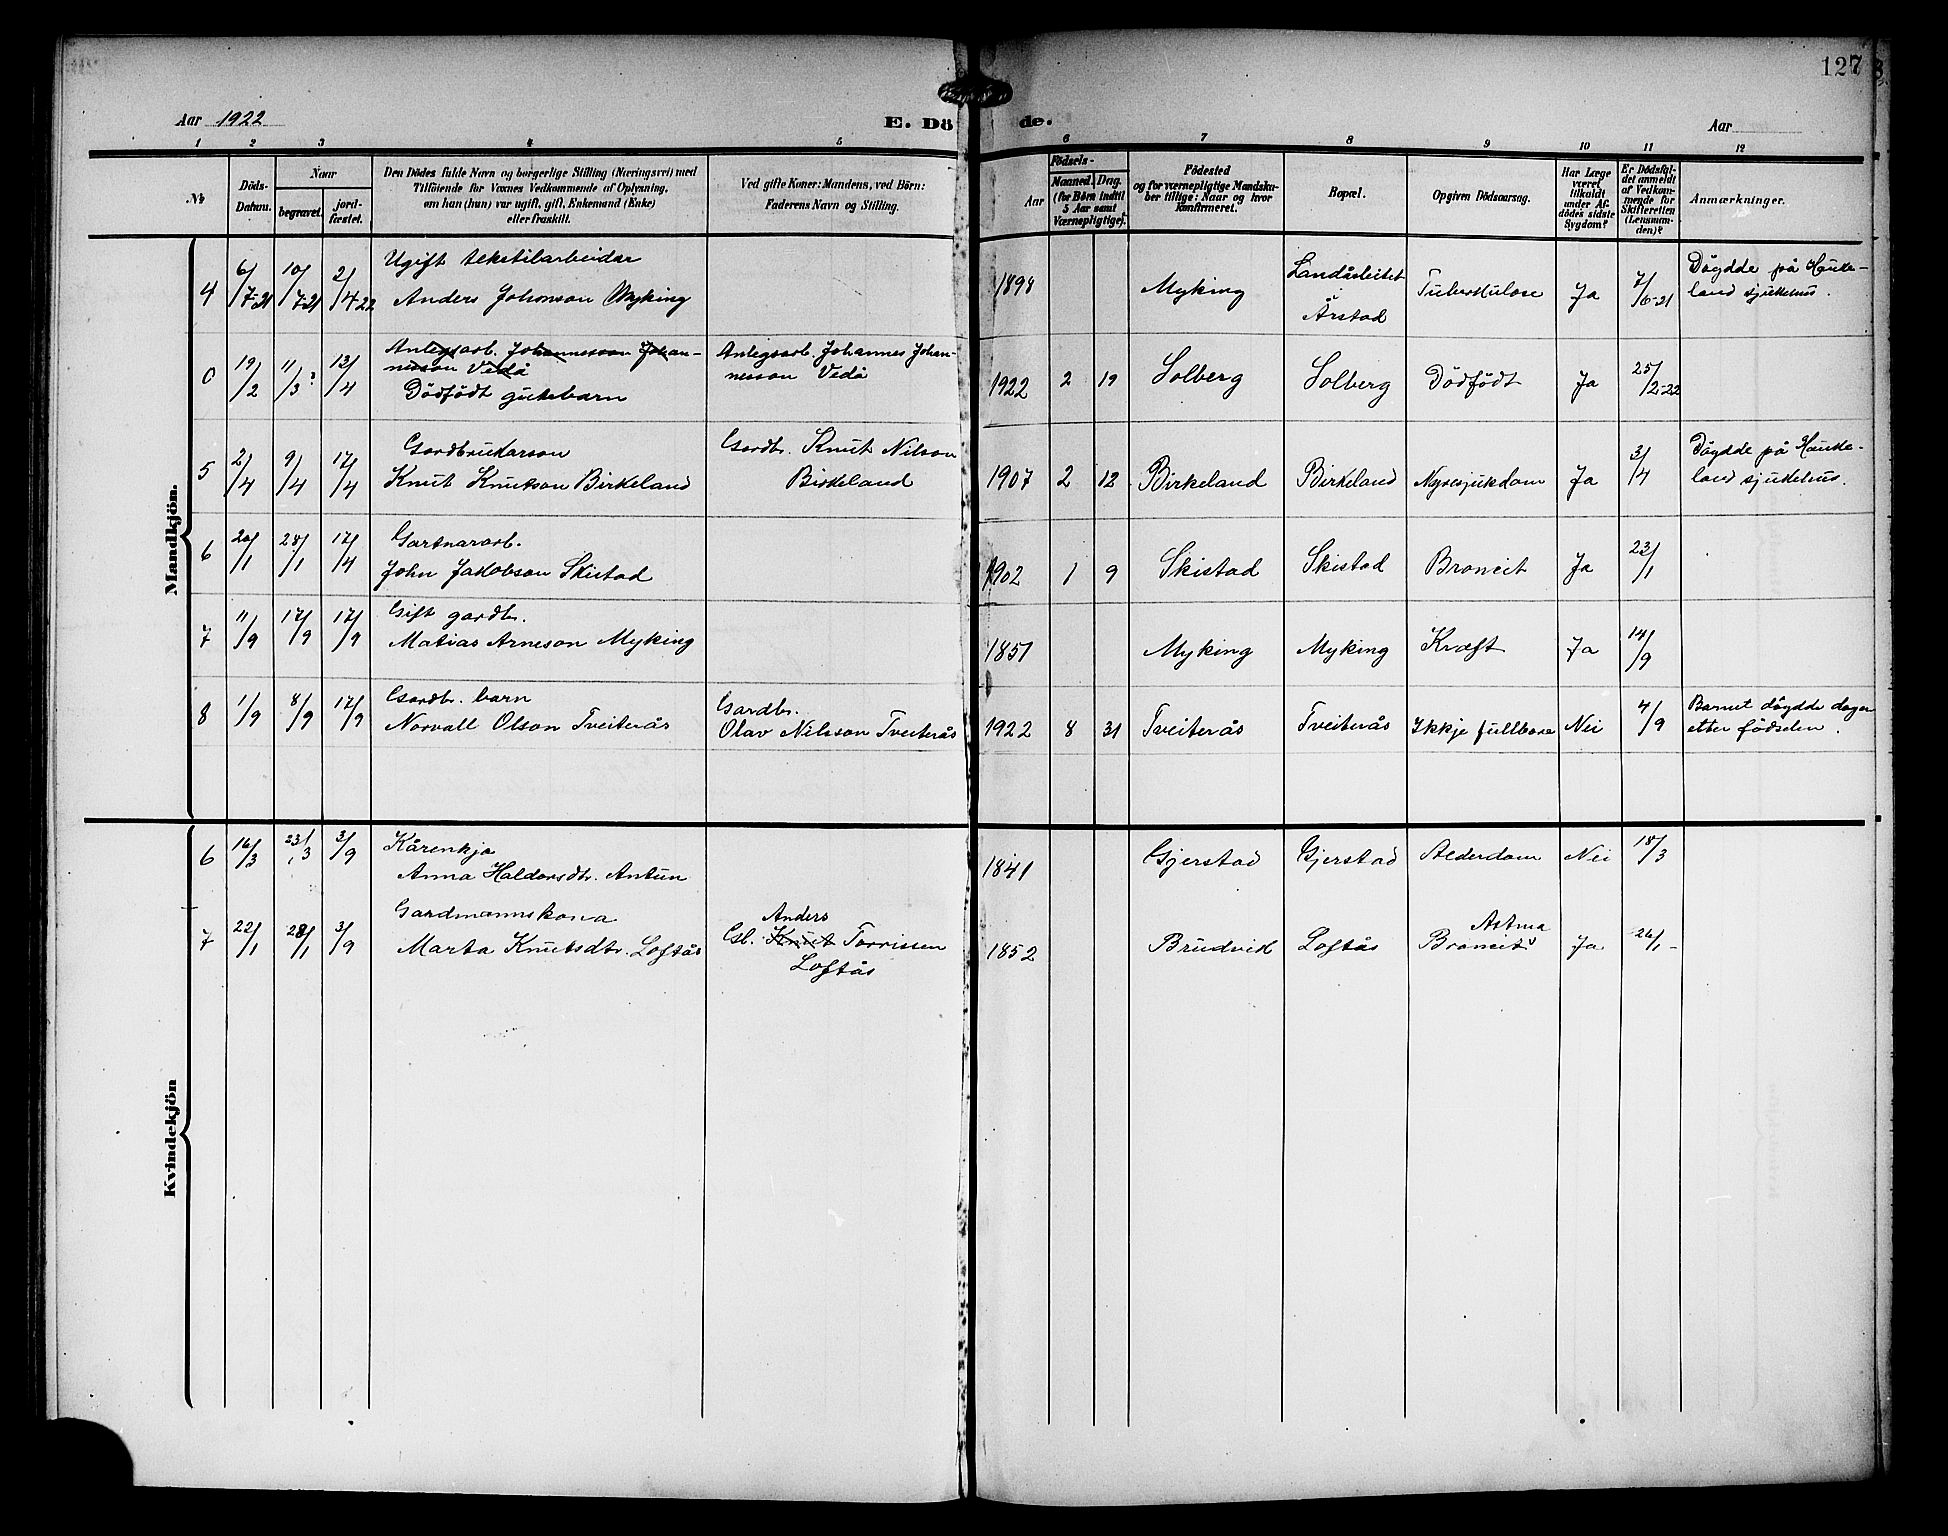 127
Aar 1922
E. Dö de.
Aar
1 2 3 4 5 6 7 8 9 10 11 12
№
Döds-Datum.
Naar
begravet.
jord-fæstet.
Den Dödes fulde Navn og borgerlige Stilling (Næringsvei) med
Tilföiende for Voxnes Vedkommende af Oplysning,
om han (hun) var ugift, gift, Enkemand (Enke)
eller fraskilt.
Ved gifte Koner: Mandens, ved Börn:
Faderens Navn og Stilling.
Födsels-
Aar
Maaned. Dag.
(for Börn indtil
5 Aar samt
Værnepligtige).
Födested
og for værnepligtige Mandska-
ber tillige: Naar og hvor
konfirmeret.
Bopæl.
Opgiven Dödsaarsag.
Har Læge
været
tilkaldt
under Af-
dödes sidste
Sygdom?
Er Dödsfal-
det anmeldt
af Vedkom-
mende for
Skifteretten
(Lensman-
den)?
Anmærkninger.
Mandkjön.
4 6/7-21 10/7-21 2/4-22 Ugift tekstilarbeidar
Anders Johanson Myking
1898 Myking Landåsleitet Årstad Tuberkulose Ja 7/6-21 Döydde på Hauke-
land sjukehus.
0 19/2 11/3? 13/4 Anlegsarb. Johannesson Johan-
nesson Vedå
Dödfödt gutebarn
Anlegsarb. Johannes Johan-
nesson Vedå
1922 2 19 Solberg Solberg Dödfödt Ja 25/2-22
5 2/4 9/4 17/4 Gardbrukarson
Knut Knutson Birkeland
Gardbr. Knut Nilson
Birkeland
1907 2 12 Birkeland Birkeland Nyresjukdom Ja 3/4 Döydde på Hauke-
land sjukehus.
6 20/1 28/1 17/4 Gartnararb.
John Jakobson Skistad
1902 1 9 Skistad Skistad Broncit Ja 23/1
7 11/9 17/9 17/9 Gift gardbr.
Matias Arneson Myking
1851 Myking Myking Kræft Ja 14/9
8 1/9 8/9 17/9 Gardbr. barn
Norvall Olson Tveiterås
Gardbr.
Olav Nilsson Tveiterås
1922 8 31 Tveiterås Tveiterås Ikkje fullbore Nei 4/9 Barnet döydde dagen
etter födselen.
Kvindekjön
6 16/3 23/3 3/9 Kårenkja
Anna Haldorsdtr. Antun
1841 Gjerstad Gjerstad Alderdom Nei 18/3
7 22/1 28/1 3/9 Gardmannskona
Marta Knutsdtr. Loftås
Anders
Gb. Knut Torrissen
Loftås
1852 Brudvik Loftås Astma
Broncit Ja 26/1